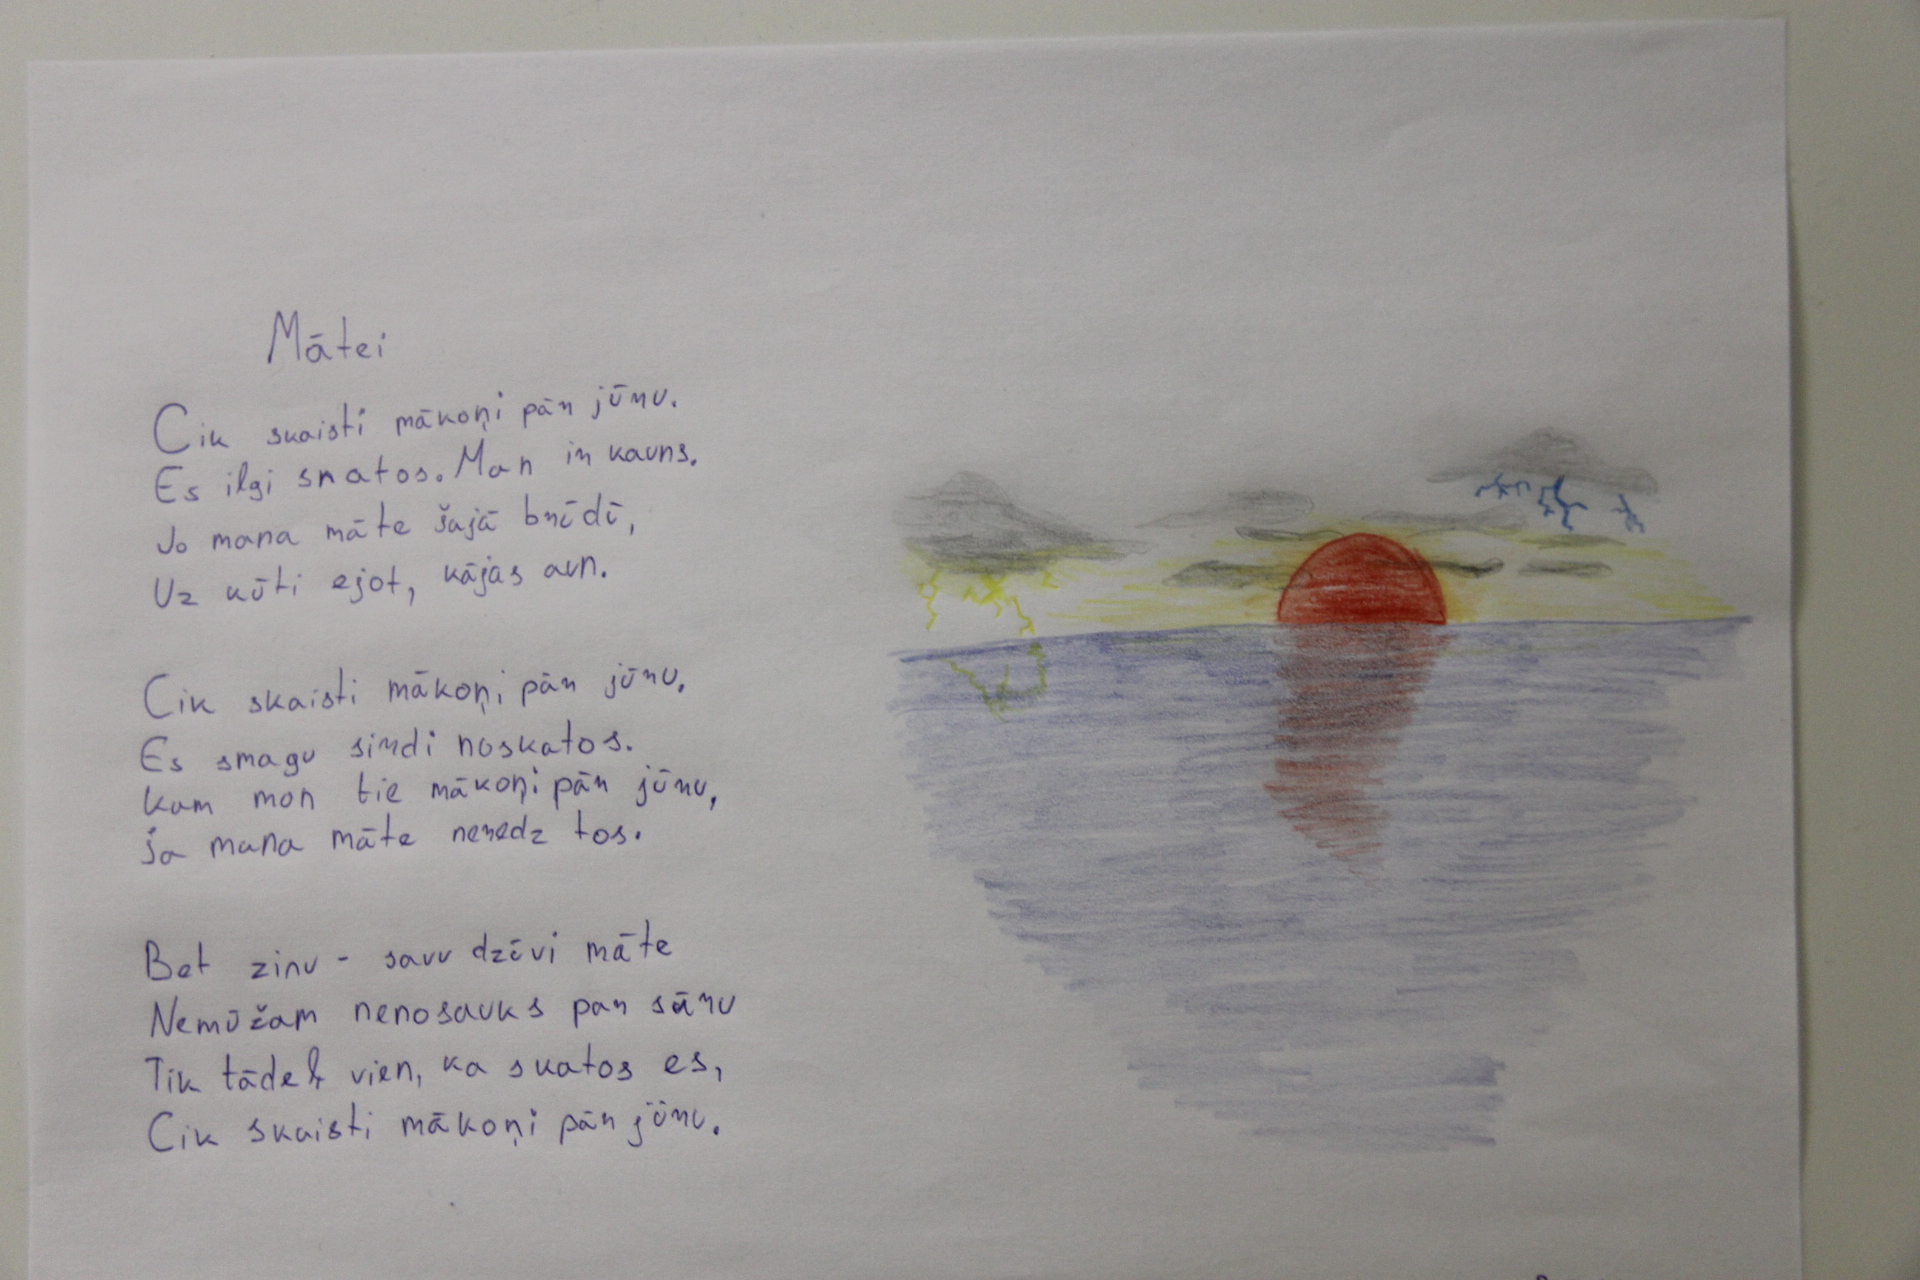 Mātei
Cik skaisti mākoņi pār jūru.
Es ilgi skatos. Man ir kauns.
Jo mana māte šajā brīdī,
Uz kūti ejot, kājas aun.
Cik skaisti mākoņi pār jūru,
Es smagu sirdi noskatos.
Kam man tie mākoņi pār jūru,
ja mana māte neredz tos.
Bet zinu - savu dzīvi māte
Nemūžam nenosauks par sūru
Tik tādeļ vien, ka skatos es,
Cik skaisti mākoņi pār jūru.